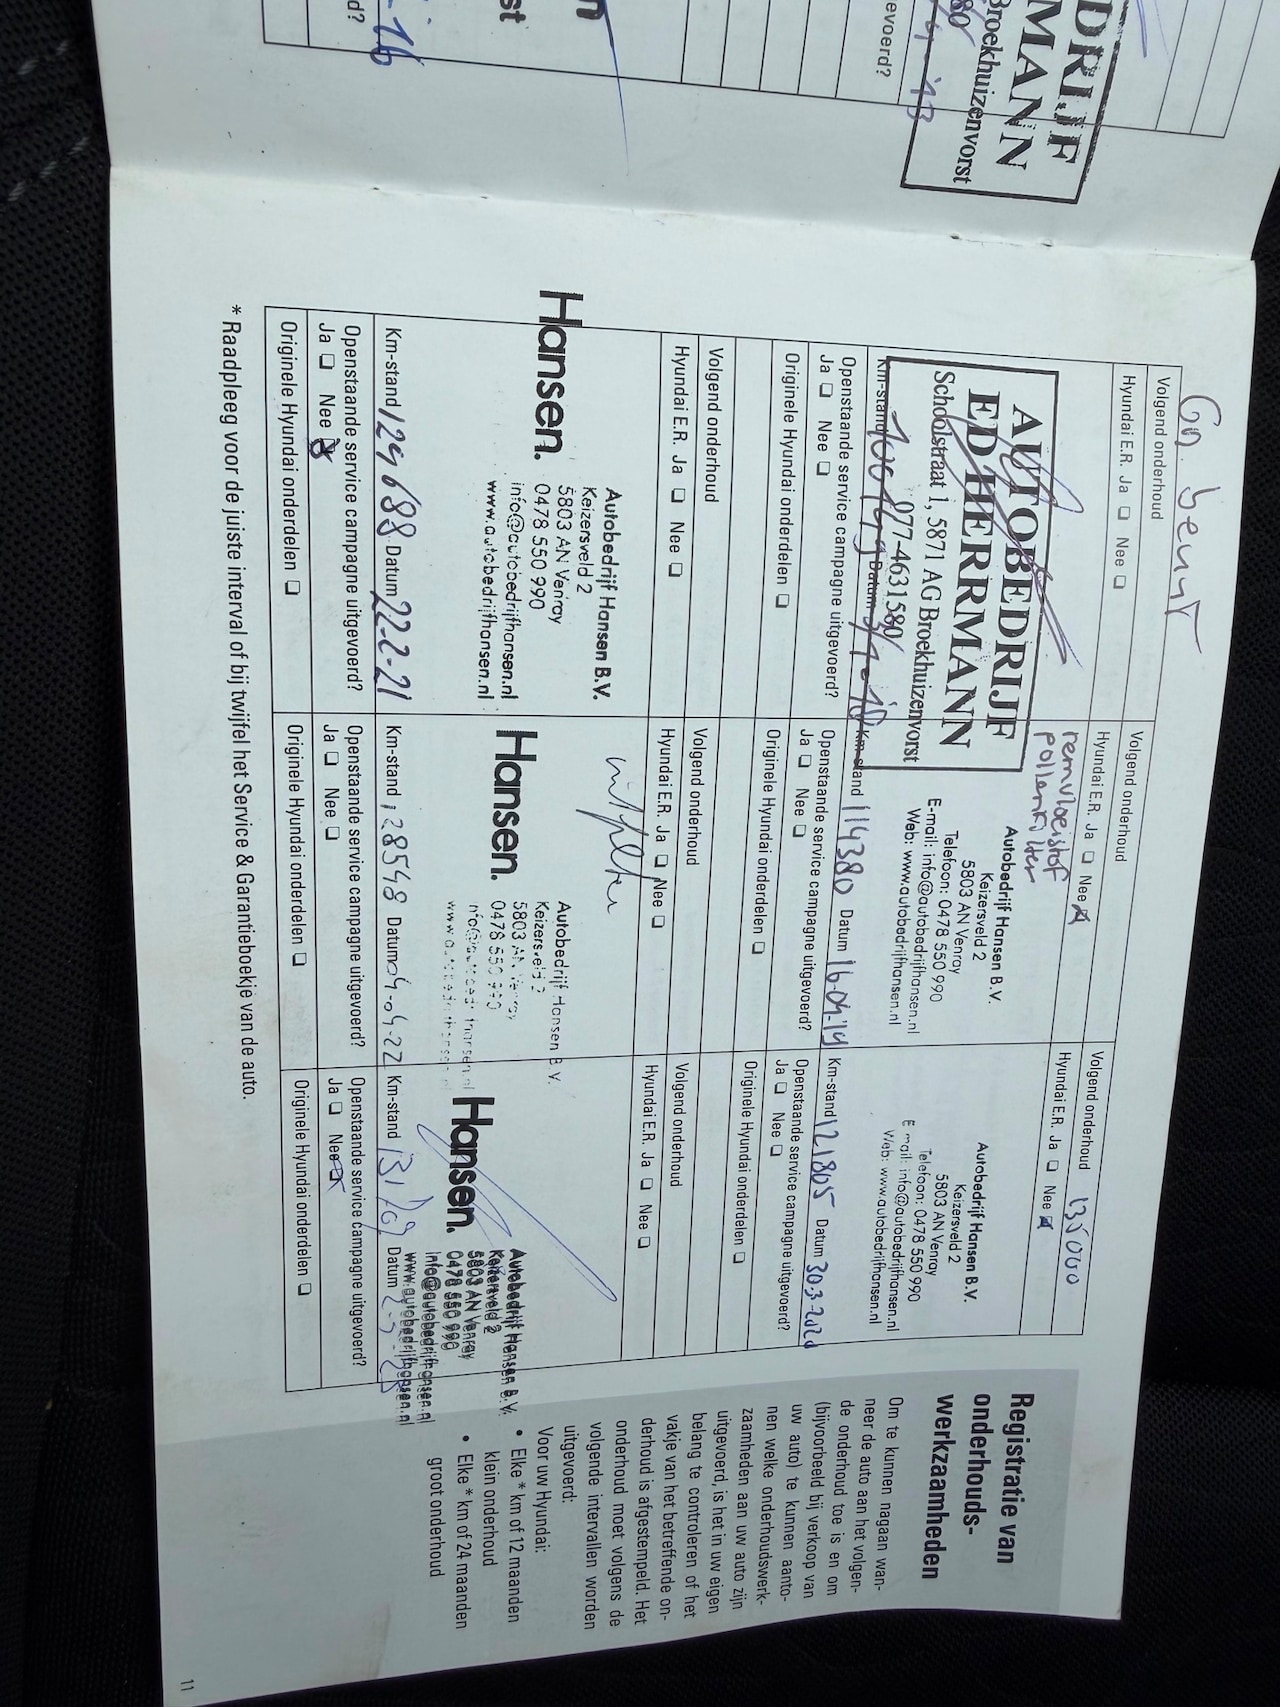 16
d?
st
n
DRIJF
MANN
Broekhuizenvorst
80
evoerd?
'13
Registratie van
onderhouds-
werkzaamheden
Om te kunnen nagaan wan-
neer de auto aan het volgen-
de onderhoud toe is en om
(bijvoorbeeld bij verkoop van
uw auto) te kunnen aanto-
nen welke onderhoudswerk-
zaamheden aan uw auto zijn
uitgevoerd, is het in uw eigen
belang te controleren of het
vakje van het betreffende on-
derhoud is afgestempeld. Het
onderhoud moet volgens de
volgende intervallen worden
uitgevoerd:
Voor uw Hyundai:
• Elke * km of 12 maanden
klein onderhoud
• Elke * km of 24 maanden
groot onderhoud
Gr. beurt
Volgend onderhoud
Hyundai E.R. Ja ❏ Nee ❏
AUTOBEDRIJF
ED HERRMANN
Schoolstraat 1, 5871 AG Broekhuizenvorst
077-4631580
Km-stand Datum
Openstaande service campagne uitgevoerd?
Ja ❏ Nee ❏
Originele Hyundai onderdelen ❏
Volgend onderhoud
Hyundai E.R. Ja ❏ Nee ❏
remvloeistof
pollenfilter
Autobedrijf Hansen B.V.
Keizersveld 2
5803 AN Venray
Telefoon: 0478 550 990
E-mail: info@autobedrijfhansen.nl
Web: www.autobedrijfhansen.nl
Km-stand 114380 Datum 16.04.19
Openstaande service campagne uitgevoerd?
Ja ❏ Nee ❏
Originele Hyundai onderdelen ❏
Volgend onderhoud 135000
Hyundai E.R. Ja ❏ Nee ❏
Autobedrijf Hansen B.V.
Keizersveld 2
5803 AN Venray
Telefoon: 0478 550 990
E-mail: info@autobedrijfhansen.nl
Web: www.autobedrijfhansen.nl
Km-stand 121805 Datum 30-3-2020
Openstaande service campagne uitgevoerd?
Ja ❏ Nee ❏
Originele Hyundai onderdelen ❏
Volgend onderhoud
Hyundai E.R. Ja ❏ Nee ❏
Hansen.
Autobedrijf Hansen B.V.
Keizersveld 2
5803 AN Venray
0478 550 990
info@autobedrijfhansen.nl
www.autobedrijfhansen.nl
Km-stand 124688 Datum 22-2-21
Openstaande service campagne uitgevoerd?
Ja ❏ Nee ❏
Originele Hyundai onderdelen ❏
Volgend onderhoud
Hyundai E.R. Ja ❏ Nee ❏
Hansen.
Autobedrijf Hansen B.V.
Keizersveld 2
5803 AN Venray
0478 550 990
Km-stand 128548 Datum 04-04-22
Openstaande service campagne uitgevoerd?
Ja ❏ Nee ❏
Originele Hyundai onderdelen ❏
Volgend onderhoud
Hyundai E.R. Ja ❏ Nee ❏
Hansen.
Autobedrijf Hansen B.V.
Keizersveld 2
5803 AN Venray
0478 550 990
info@autobedrijfhansen.nl
www.autobedrijfhansen.nl
Km-stand Datum
Openstaande service campagne uitgevoerd?
Ja ❏ Nee ❏
Originele Hyundai onderdelen ❏
* Raadpleeg voor de juiste interval of bij twijfel het Service & Garantieboekje van de auto.
11